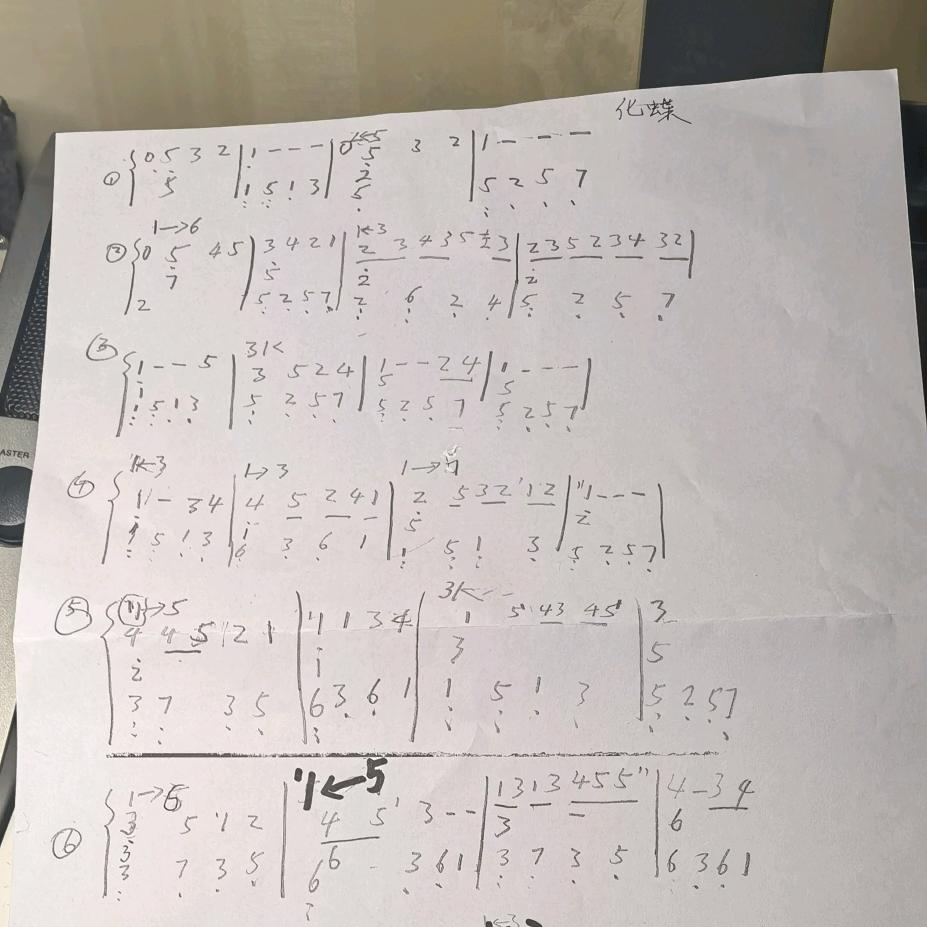 化蝶
① 0 5 3 2 | 1 - - - | 0 5 3 2 | 1 - - -
5 | 1 5 1 3 | 2 | 5 2 5 7
5
1→6 1←3
② 0 5 4 5 | 3 4 2 1 | 2 3 4 3 5 | 2 3 5 2 3 4 3 2 |
7 | 5 | 2 | 2
2 | 5 2 5 7 | 2 6 2 4 | 5 2 5 7
③ 1 - - 5 | 3 5 2 4 | 1 - - 2 4 | 1 - - - |
1 5 1 3 | 5 2 5 7 | 5 2 5 7 | 5 2 5 7
1←3 1→3
④ 1 - 3 4 | 4 5 2 4 1 | 2 5 3 2 1 2 | 1 - - - |
1 5 1 3 | 6 3 6 1 | 1 5 1 3 | 5 2 5 7
⑤ 4 4 5 1 2 1 | 4 1 3 4 | 1 5 4 3 4 5 | 3
2 | 1 | 3 | 5
3 7 3 5 | 6 3 6 1 | 1 5 1 3 | 5 2 5 7
1←5
⑥ 3 5 1 2 | 4 5 3 - - | 1 3 1 3 4 5 5 | 4 - 3 4
3 | 6 | 3 | 6
3 7 3 5 | 6 3 6 1 | 3 7 3 5 | 6 3 6 1
1←3
ASTER